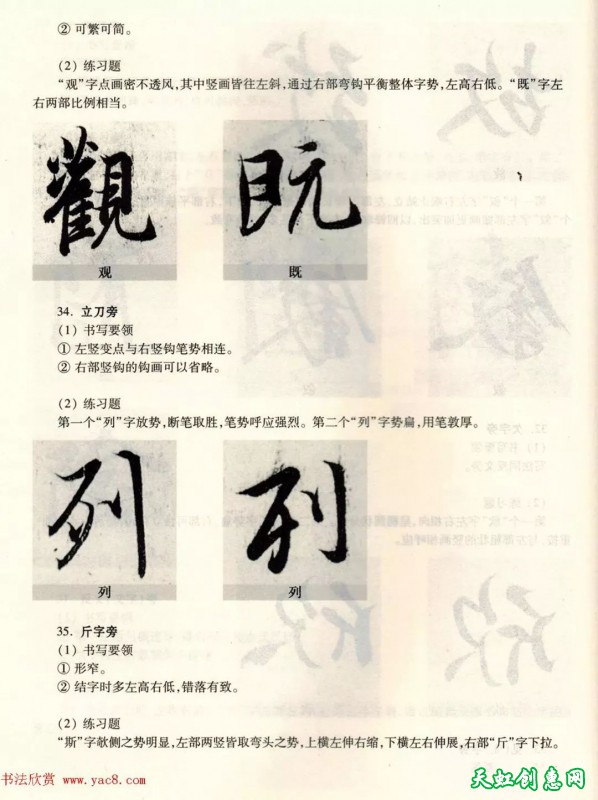 ② 可繁可简。
(2) 练习题
“观”字点画密不透风,其中竖画皆往左斜,通过右部弯钩平衡整体字势,左高右低。“既”字左
右两部比例相当。
觀 既
观 既
34. 立刀旁
(1) 书写要领
① 左竖变点与右竖钩笔势相连。
② 右部竖钩的钩画可以省略。
(2) 练习题
第一个“列”字放势,断笔取胜,笔势呼应强烈。第二个“列”字势扁,用笔敦厚。
列 列
列 列
35. 斤字旁
(1) 书写要领
① 形窄。
② 结字时多左高右低,错落有致。
(2) 练习题
“斯”字欹侧之势明显,左部两竖皆取弯头之势,上横左伸右缩,下横左右伸展,右部“斤”字下拉。
书法欣赏 www.yac8.com
天虹创意网